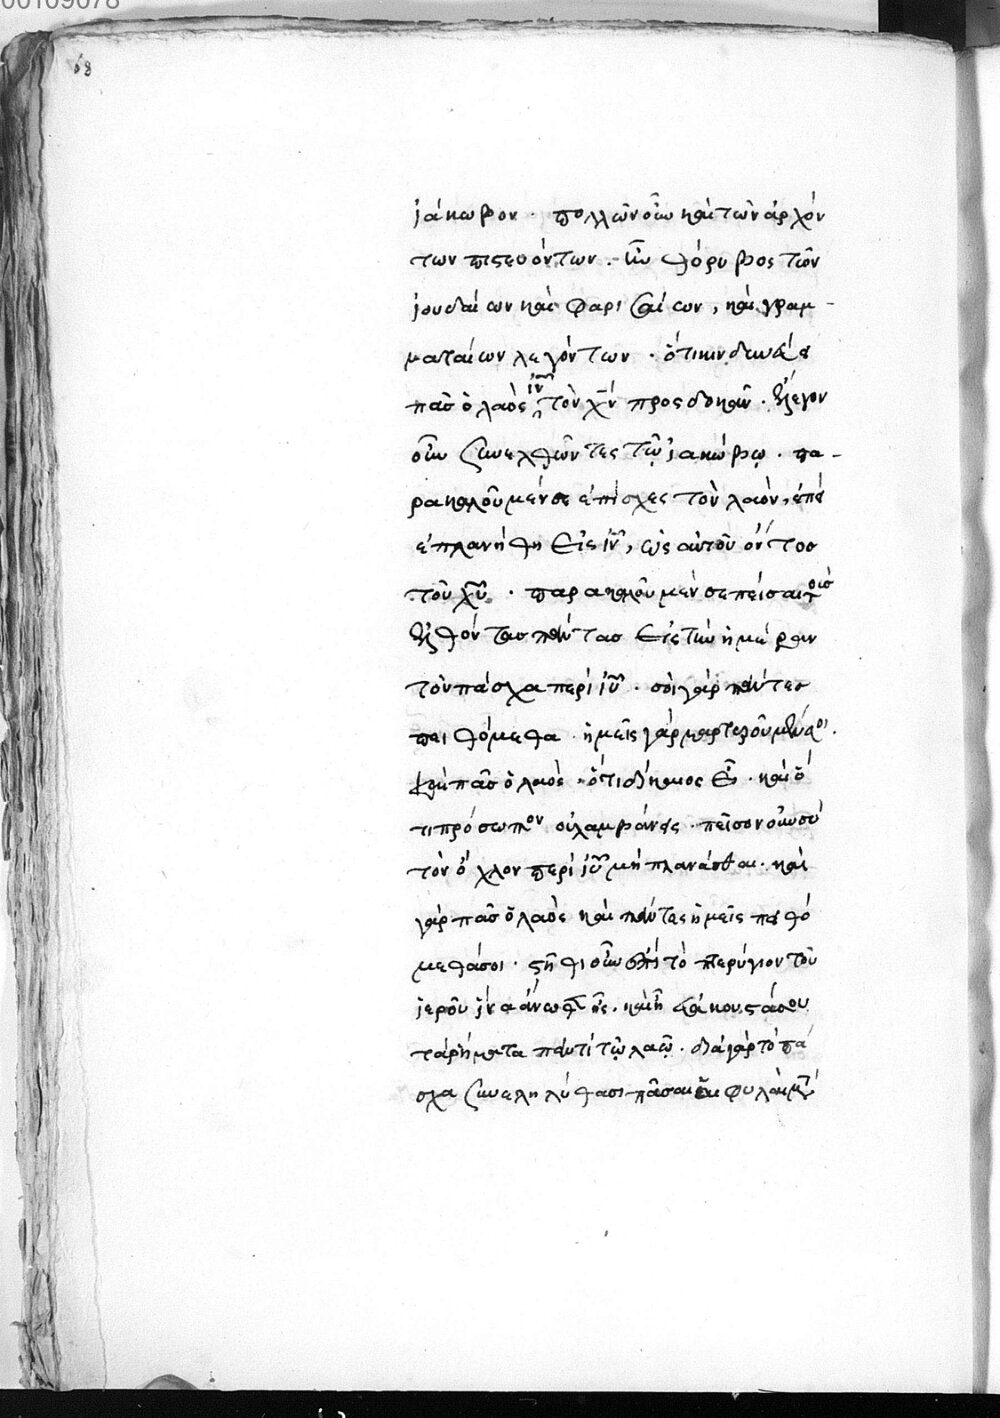 00109078
68
ἰάκωβον · πολλῶν οὖν καὶ τῶν ἀρχόν
των πιστευόντων · ἦν θόρυβος τῶν
ἰουδαίων καὶ φαρισαίων, καὶ γραμ-
ματαίων λεγόντων · ὅτι κινδυνεύει
πᾶσ ὁ λαὸς ἰν̅ τὸν χν̅ προσδοκᾶν · ἔλεγον
οὖν συνελθῶντες τῶ ἰακώβω · πα-
ρακαλοῦμέν σε ἐπίσχες τὸν λαὸν, ἐπεὶ
ἐπλανήθη εἰς ἰν̅, ὡς αὐτοῦ ὄντοσ
τοῦ χυ̅ · παρακαλοῦμέν σε πεῖσαι τοὺσ
ἐλθόντασ πάντασ εἰς τὴν ἡμέραν
τὸν πάσχα περὶ ἰυ̅ · σοὶ γὰρ πάντεσ
πειθόμεθα · ἡμεῖς γὰρ μαρτυροῦμέν σοι
καὶ πᾶσ ὁ λαὸς · ὅτι δίκαιος εἶ · καὶ ὅ
τι πρόσωπον οὐ λαμβάνεις · πεῖσον οὖν σὺ
τὸν ὄχλον περὶ ἰυ̅ μὴ πλανᾶσθαι · καὶ
γὰρ πᾶσ ὁ λαὸς καὶ πάντες ἡμεῖς πειθό
μεθά σοι · στῆθι οὖν ἐπὶ τὸ πτερύγιον τοῦ
ἱεροῦ ἵνα ἄνωθεν ἦς · καὶ ἦ εὐάκουστά σου
τὰ ῥήματα παντὶ τῶ λαῶ · διὰ γὰρ τὸ πά
σχα συνεληλύθασι πᾶσαι αἱ φυλαὶ μετὰ